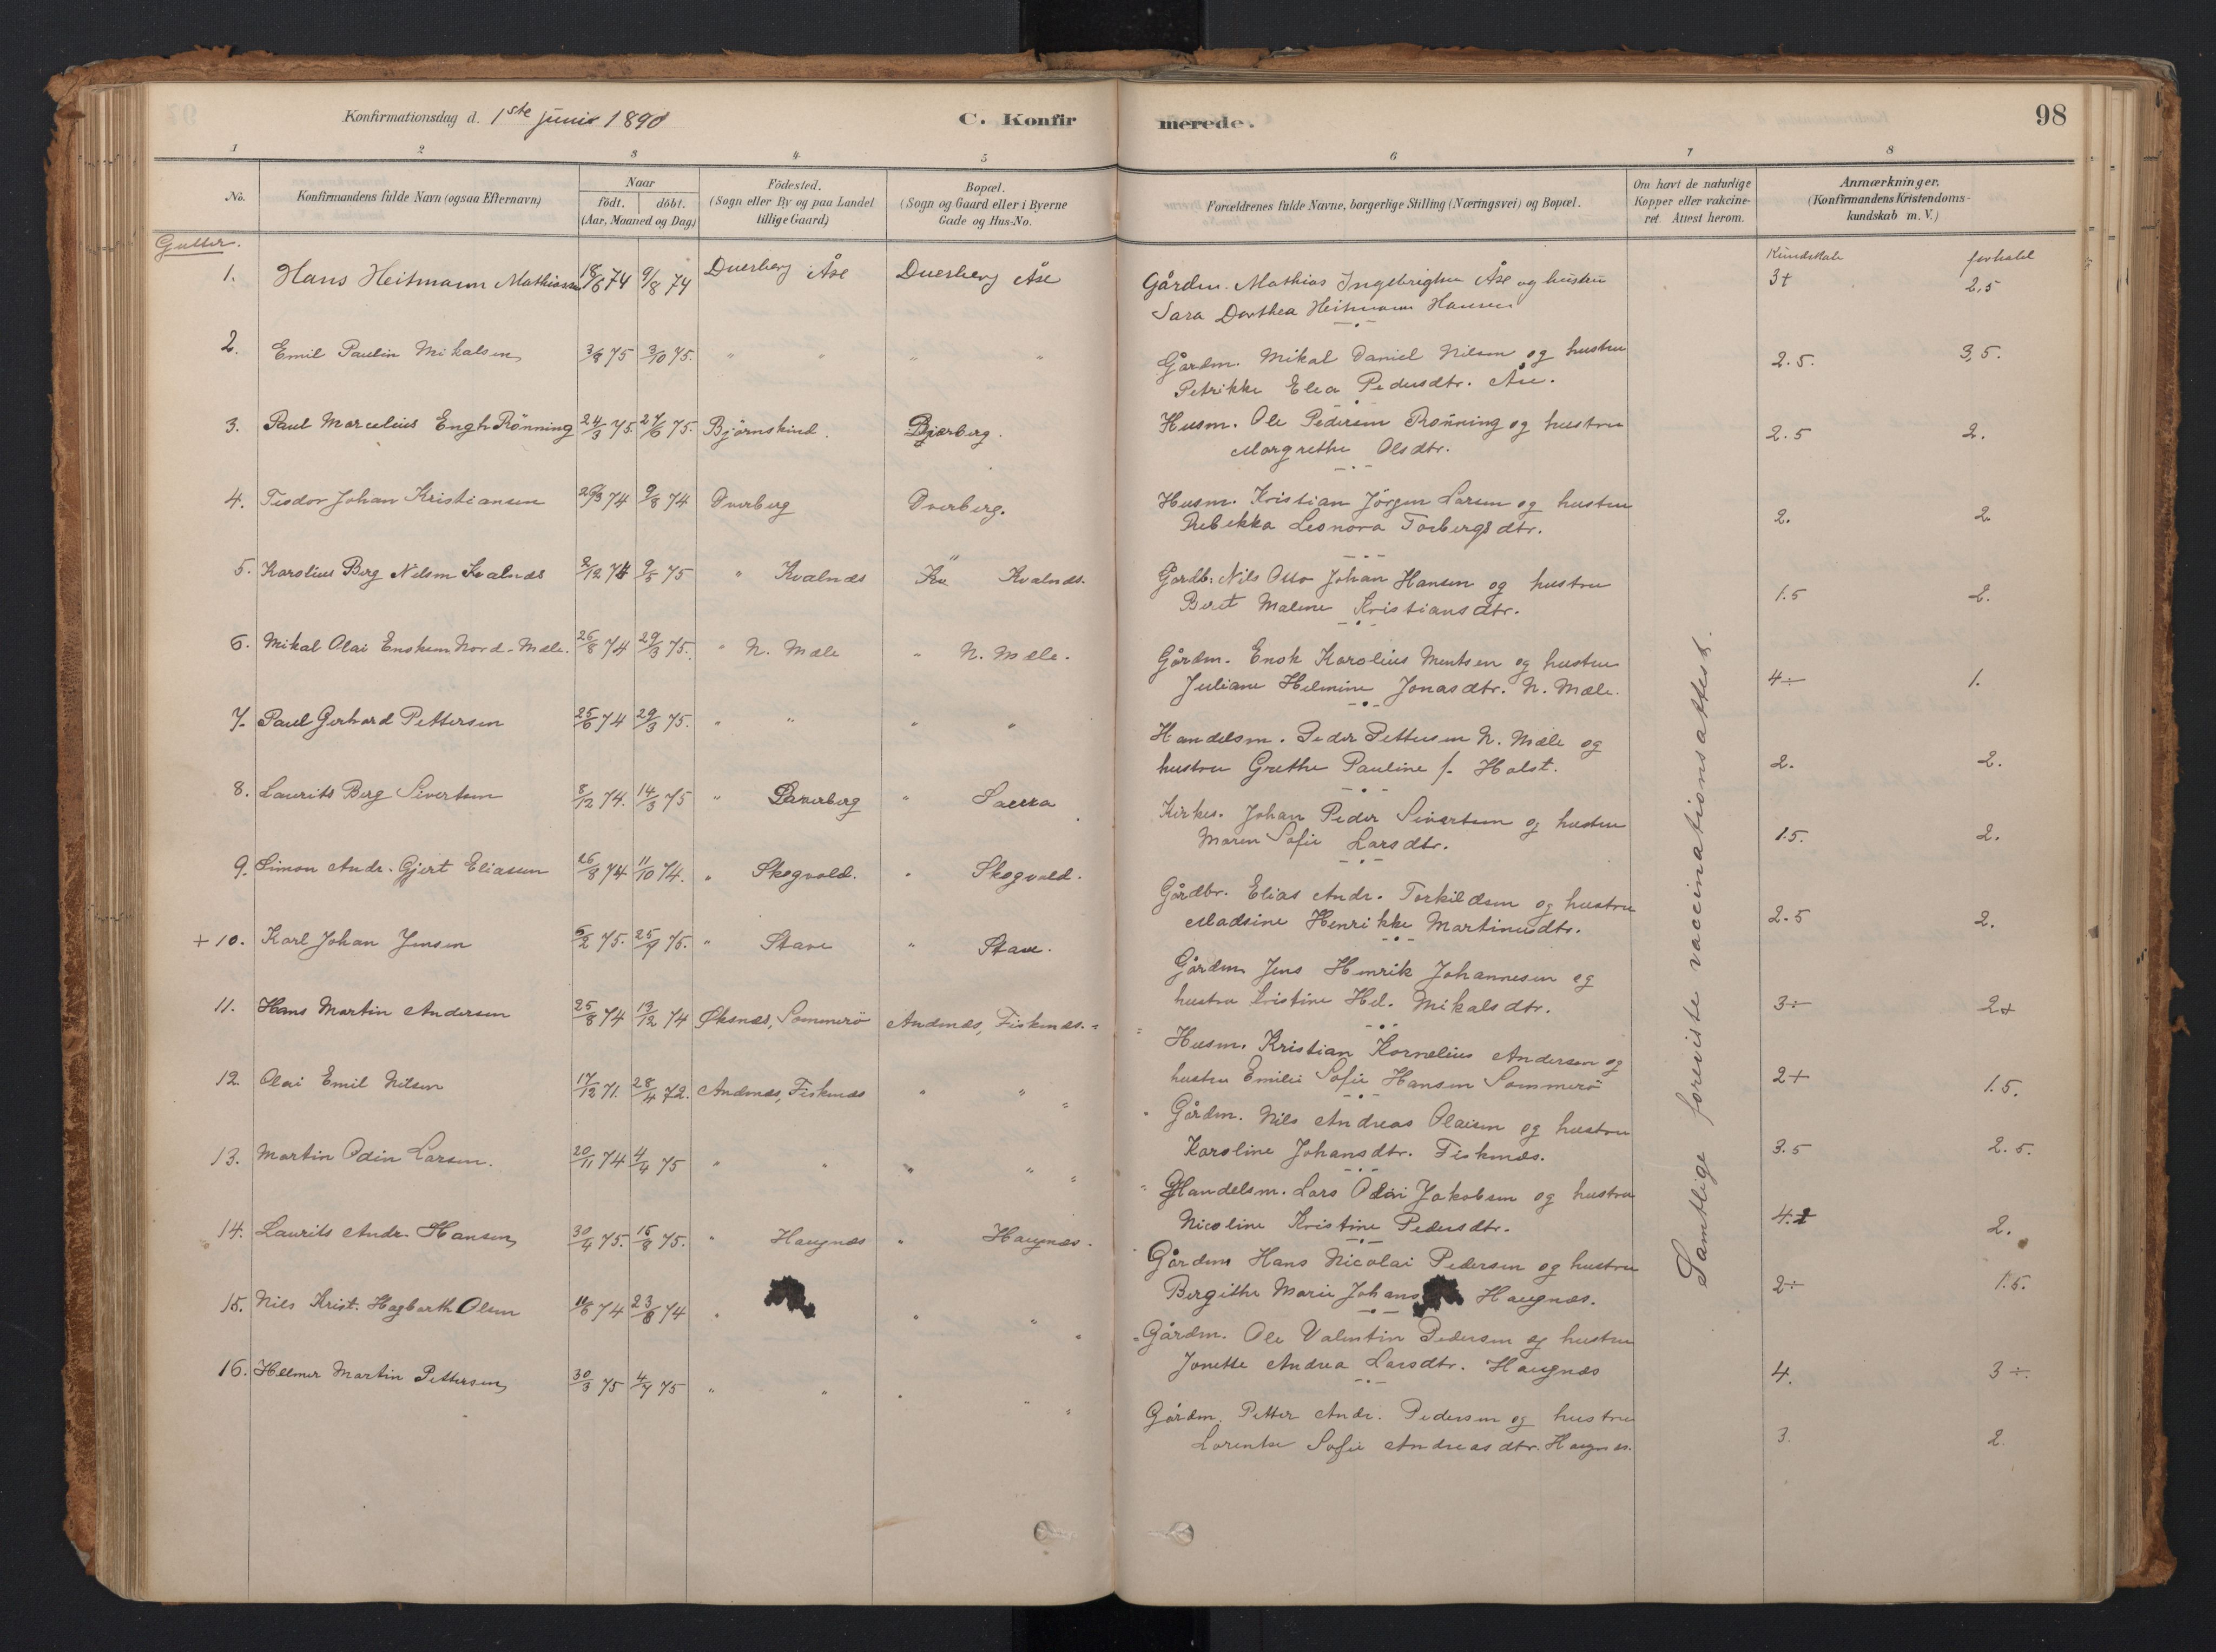 Konfirmationsdag d. 1ste juni 1890
C. Konfirmerede.
98
1 2 3 4 5 6 7 8
No.
Konfirmandens fulde Navn (ogsaa Efternavn)
Naar
födt. döbt.
(Aar, Maaned og Dag)
Födested.
(Sogn eller By og paa Landet tillige Gaard)
Bopæl.
(Sogn og Gaard eller i Byerne Gade og Hus-No.
Forældrenes fulde Navne, borgerlige Stilling (Næringsvei) og Bopæl.
Om havt de naturlige Kopper eller vakcineret. Attest herom.
Anmærkninger.
(Konfirmandens Kristendomskundskab m. V.)
Gutter.
Kundskab forhold
1. Hans Heitmann Mathiassen 18/6 74 9/8 74 Dverberg Åse Dverberg Åse Gårdm. Mathias Ingebrigtsen Åse og hustru 3+ 2,5
Sara Dorthea Heitmann Hansen
2. Emil Paulin Mikalsen 3/8 75 3/10 75. " " " " Gårdm. Mikal Daniel Nilsen og hustru 2.5. 3,5.
Petrikke Elea Pedersdtr. Åse.
3. Paul Marcelius Engh Rönning 24/3 75. 27/6 75. Björnskind. Bjerberg. Husm. Ole Pedersen Rönning og hustru 2.5 2.
Margrethe Olsdtr.
4. Teodor Johan Kristiansen 29/3 74 9/8 74 Dverberg Dverberg. Husm. Kristian Jörgen Larsen og hustru 2. 2
Rebekka Leonora Torbergsdtr.
5. Karolius Berg Nilsen Kvalnæs 2/12 74 9/5 75 " Kvalnæs " Kvalnæs. Gårdb. Nils Otto Johan Hansen og hustru 1.5 2.
Berit Malene Kristiansdtr.
6. Mikal Olai Enoksen Nord-Mæle. 26/8 74 29/3 75. " N. Mæle " N. Mæle. Gårdm. Enok Karolius Mentsen og hustru 4÷ 1.
Juliane Helmine Jonasdtr. N. Mæle.
7. Paul Gerhard Pettersen 25/6 74 29/3 75. " " " " Handelsm. Peder Pettersen N. Mæle og 2. 2.
hustru Grethe Pauline f. Holst.
8. Laurits Berg Sivertsen 8/12 74. 14/3 75 " Dverberg " Saura Kirkes. Johan Peder Sivertsen og hustru 1.5. 2.
Maren Sofie Larsdtr.
9. Simon Andr. Gjert Eliassen 26/8 74 11/10 74. " Skogvold. " Skogvold. Gårdbr. Elias Andr. Torkildsen og hustru 2.5 2.
Madsine Henrikke Martinusdtr.
+ 10. Karl Johan Jensen 6/2 75. 25/7 75. " Stave " Stave. Gårdm Jens Henrik Johannesen og 3÷ 2+
hustru Kristine Hel. Mikalsdtr.
11. Hans Martin Andersen 25/8 74 13/12 74 Øksnæs, Sommerö Andenæs, Fiskenæs. Husm. Kristian Kornelius Andersen og 2+ 1.5.
hustru Emilie Sofie Hansen Sommerö
12. Olai Emil Nilsen 17/12 71. 28/4 72. Andenæs, Fiskenæs " " Gårdm. Nils Andreas Olaisen og hustru 3.5 2.5.
Karoline Johansdtr. Fiskenæs.
13. Martin Odin Larsen. 20/11 74 4/4 75 " " " " Handelsm. Lars Odin Jakobsen og hustru 4. 2.
Nicoline Kristine Pedersdtr.
14. Laurits Andr. Hansen 30/4 75. 15/8 75. " Haugnæs " Haugnæs. Gårdm Hans Nicolai Pedersen og hustru 2÷ 1.5.
Bergithe Marie Johans Haugnæs.
15. Nils Krist. Hagbarth Olsen 11/6 74 23/8 74 " " " Gårdm. Ole Valentin Pedersen og hustru 4. 3÷.
Jonette Andrea Larsdtr. Haugnæs
16. Helmer Martin Pettersen 30/3 75 4/7 75 " " " " Gårdm. Petter Andr. Pedersen og hustru 3. 2
Lorentse Sofie Andreasdtr. Haugnæs.
Samtlige foreviste vaccinationsattest.